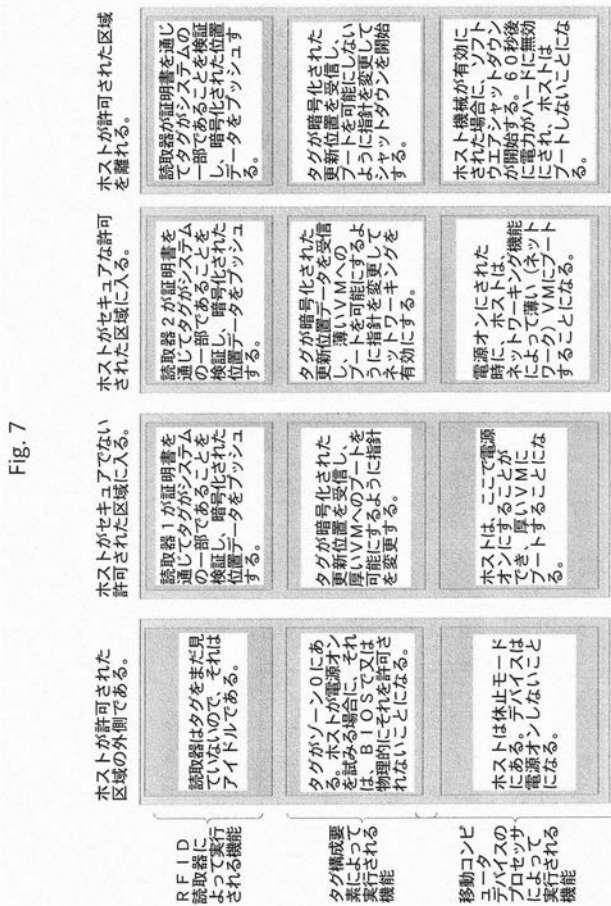 Fig. 7
ホストが許可された
区域の外側である。
ホストがセキュアでない
許可された区域に入る。
ホストがセキュアな許可
された区域に入る。
ホストが許可された区域
を離れる。
RFID
読取器に
よって実行
される機能
読取器はタグをまだ見
ていないので、それは
アイドルである。
読取器1が証明書を
通じてタグがシステム
の一部であることを
検証し、暗号化された
位置データをプッシュ
する。
読取器2が証明書を
通じてタグがシステム
の一部であることを
検証し、暗号化された
位置データをプッシュ
する。
読取器が証明書を通じ
てタグがシステムの
一部であることを検証
し、暗号化された位置
データをプッシュす
る。
タグ構成要
素によって
実行される
機能
タグがゾーン0にあ
る。ホストが電源オン
を試みる場合に、それ
は、BIOSで又は
物理的にそれを許可さ
れないことになる。
タグが暗号化された
更新位置を受信し、
厚いVMへのブートを
可能にするように指針
を変更する。
タグが暗号化された
更新位置データを受信
し、薄いVMへの
ブートを可能にするよ
うに指針を変更して
ネットワーキングを
有効にする。
タグが暗号化された
更新位置を受信し、
ブートを可能にしない
ように指針を変更して
シャットダウンを開始
する。
移動コンピ
ュータ
デバイスの
プロセッサ
によって
実行される
機能
ホストは休止モード
にある。デバイスは
電源オンしないこと
になる。
ホストは、ここで電源
オンにすることが
でき、厚いVMに
ブートすることにな
る。
電源オンにされた
時に、ホストは、
ネットワーキング機能
によって薄い(ネット
ワーク)VMにブート
することになる。
ホスト機械が有効に
された場合に、ソフト
ウエアシャットダウン
が開始する。60秒後
に電力がハードに無効
にされ、ホストは
ブートしないことにな
る。